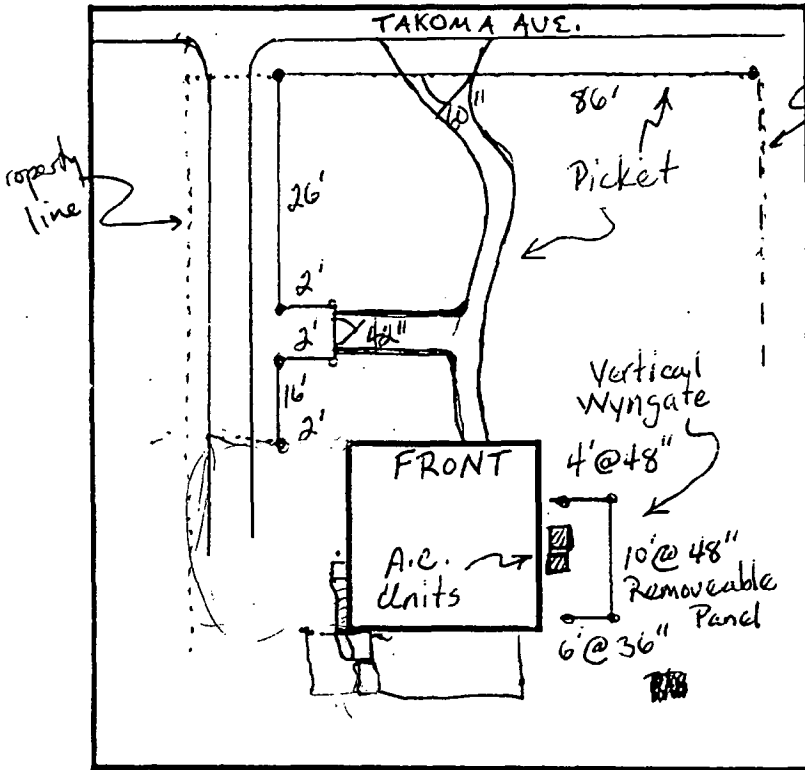 TAKOMA AVE.
86'
Picket
roperty
line
26'
2'
2'
42"
16'
2'
Vertical
Wyngate
FRONT
4'@48"
A.C.
Units
10'@48"
Removeable
Panel
6'@36"